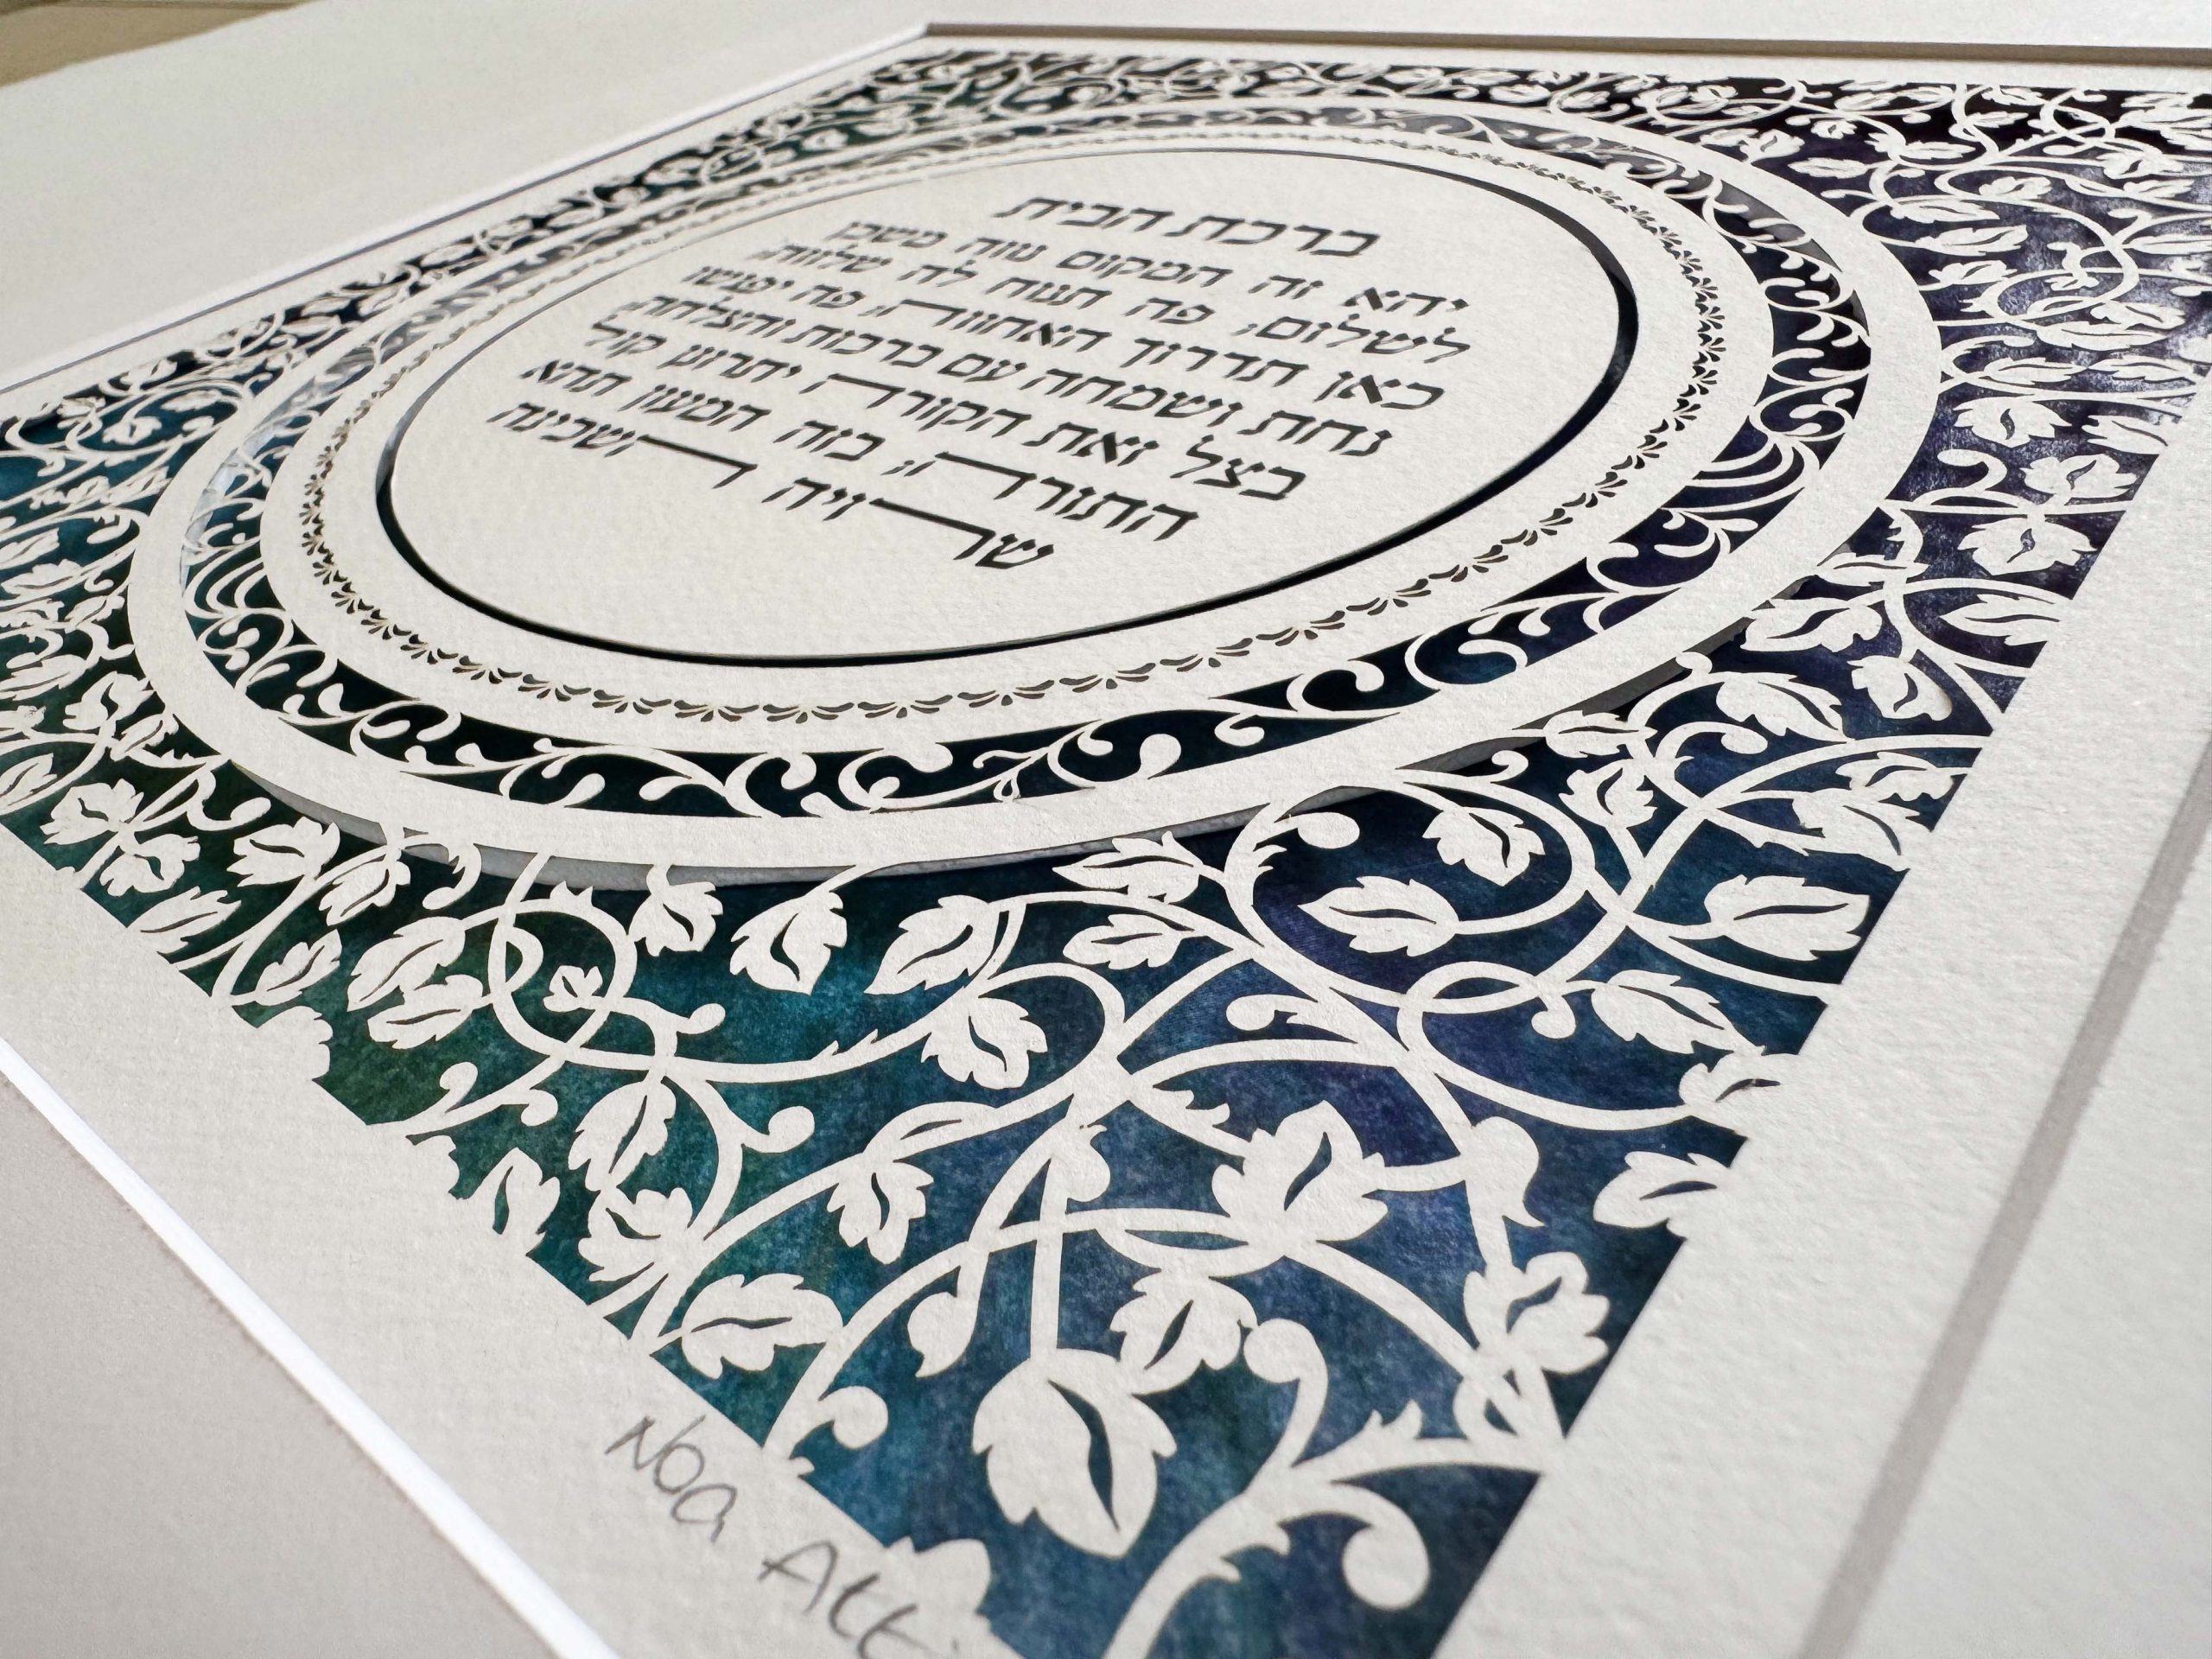 ברכת הבית
יהא זה המקום נווה משכן
לשלום; פה תנוח לה שלווה,
כאן תדרוך האחווה; פה יפגשו
נחת ושמחה עם ברכות והצלחה,
בצל זאת הקורה יתרונן קול
התורה, בזה המעון תהא
שרויה השכינה
Noa